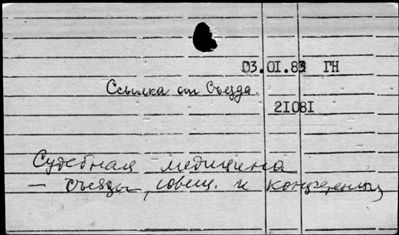 03.01.83 ГН
Ссылка от Съезда
21081
Судебная медицина
— съезды, совещ. и конференции